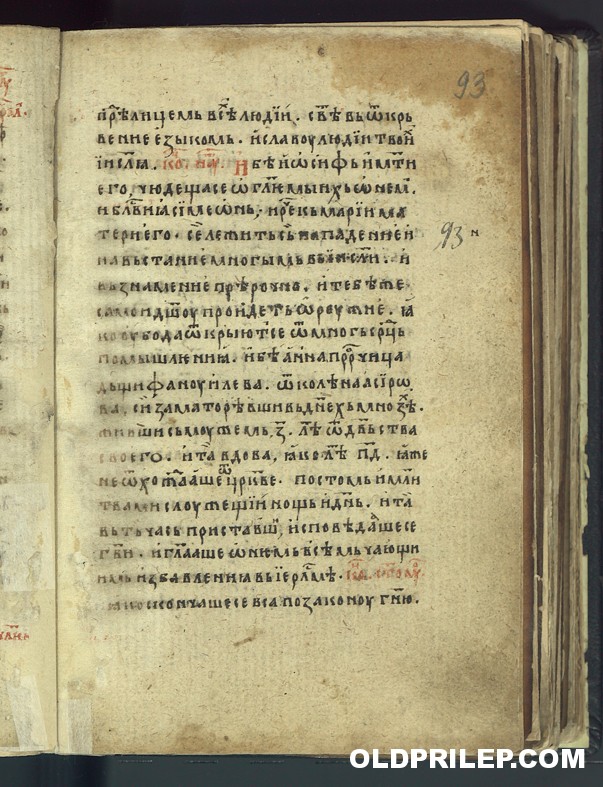 93
прѣ лицемь всѣ людїи . свѣ вь ѿкрь
вение езыкомь . и славоу людїи твои
їислꙗ . И бѣ иѡсифь и мт҃и
его, чюдеща се ѡ гл҃имыихь ѡ нем .
и блв҃и ꙗ симеѡнь, и рече кь марїи ма
тери его . се лежить сь на падение и
на вьстание многымь вь їисл҃и . и
вь знамение прѣрочно . и тебѣ же
самои дш҃оу проидеть ѡроужие . ꙗ
ко оубо да ѿкрыют се ѿ многь срць
помышлениꙗ . и бѣ анна прⷪрчица
дьщи фаноуилева . ѿ колѣна асїрѡ
ва, сїи заматорѣвши вь днехь мнозѣ .
живши сь моужемь, з҃ . лѣ ѿ двьства
своего . и та вдова, ꙗко лѣ п҃д . ꙗже
не ѿхождааше ѿ црк҃ве . постомь и мл҃и
твами слоужещїи нощь и дн҃ь . и та
вь ть чась приставши, исповѣдаше се
гв҃и . и гл҃ааше ѡ нѥмь всѣмь чающи
имь избавлениꙗ вь їерлⷭмѣ .
ꙗко скончаше се всꙗ по законоу гн҃ю .
93
OLDPRILEP.COM